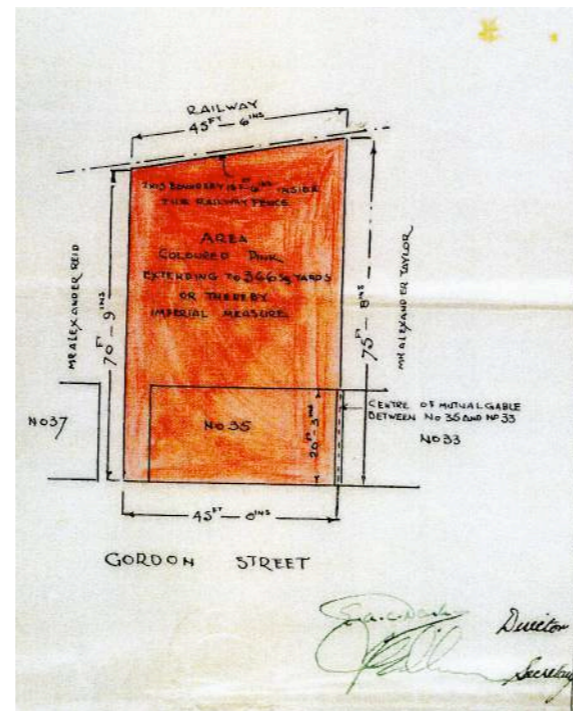 RAILWAY
45FT — 6INS
THIS BOUNDARY IS INSIDE
THE RAILWAY FENCE
AREA
COLOURED PINK
EXTENDING TO 366 Sq YARDS
OR THEREBY
IMPERIAL MEASURE
MR ALEXANDER REID
70FT — 9INS
MR ALEXANDER TAYLOR
75FT — 8INS
CENTRE OF MUTUAL GABLE
BETWEEN No 35 AND No 33
No 37
No 35
No 33
45FT — 0INS
GORDON STREET
Director
Secretary